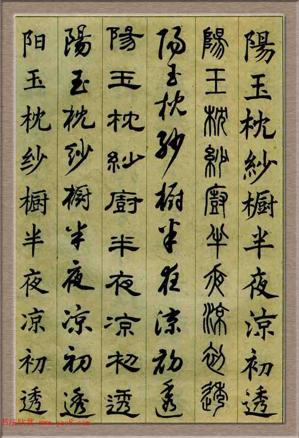 陽玉枕紗櫥半夜涼初透
陽玉枕紗廚半夜涼初透
陽玉枕紗櫥半夜涼初透
陽玉枕紗廚半夜涼初透
陽玉枕紗櫥半夜凉初透
阳玉枕纱橱半夜凉初透